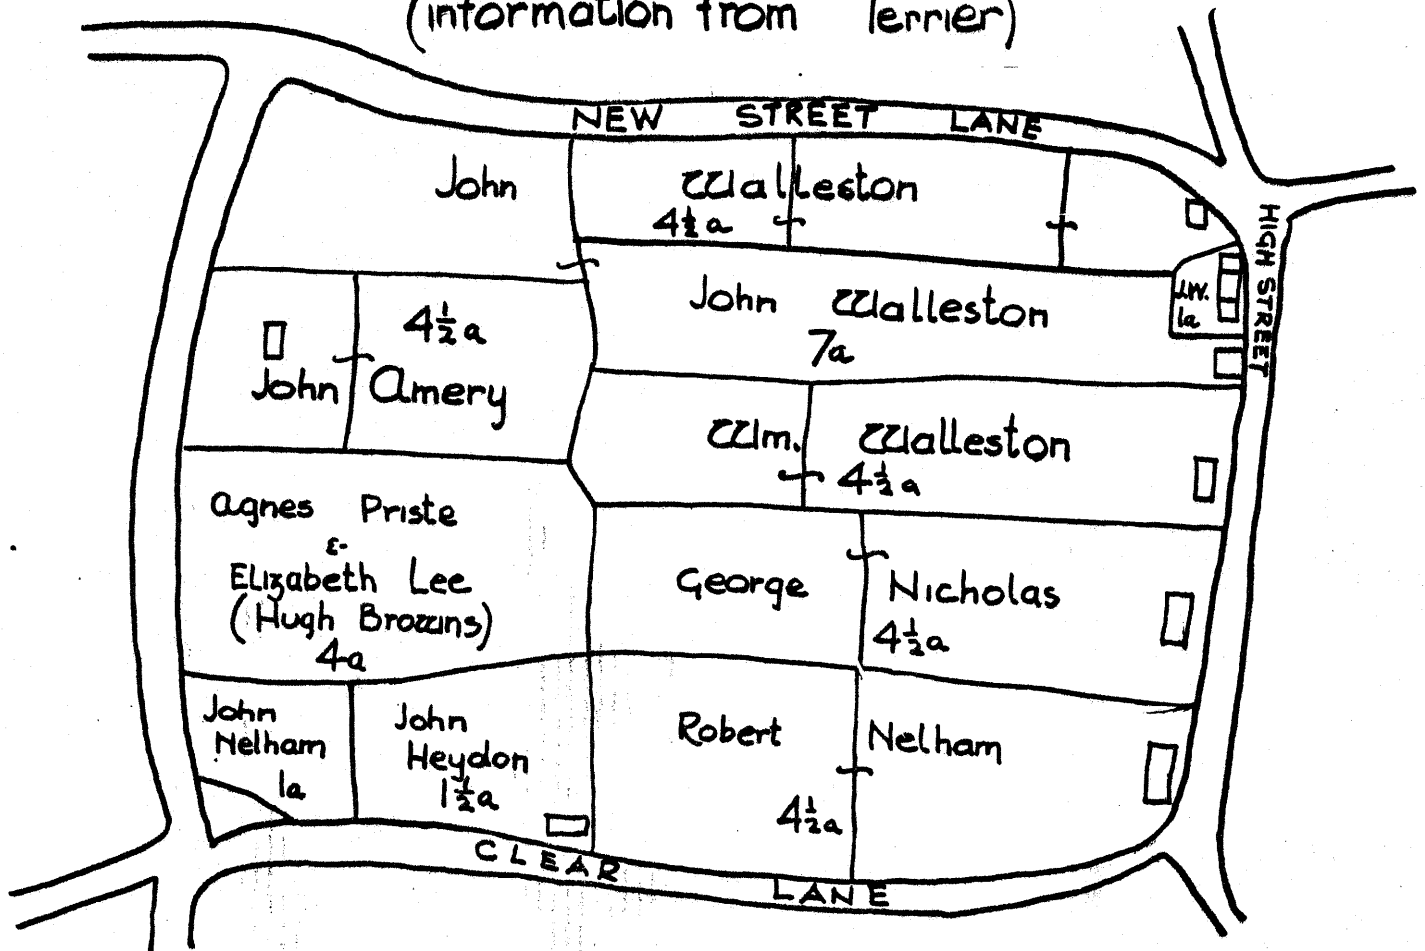 (information from Terrier)
NEW STREET LANE
John Walleston
4½a
HIGH STREET
John Walleston
7a
J.W.
1a
4½a
John Amery
Wm. Walleston
4½a
Agnes Priste
&
Elizabeth Lee
(Hugh Browns)
4a
George Nicholas
4½a
John
Nelham
1a
John
Heydon
1½a
Robert Nelham
4½a
CLEAR LANE